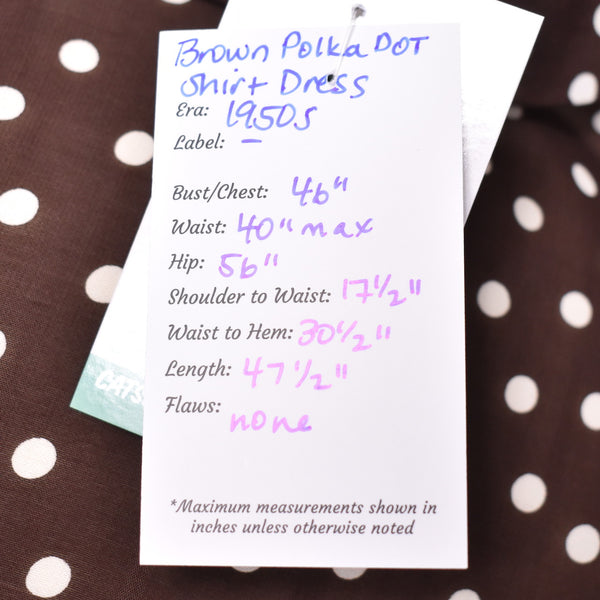 Brown Polka DOT
Shirt Dress
Era: 1950s
Label: –
Bust/Chest: 46"
Waist: 40" max
Hip: 56"
Shoulder to Waist: 17 1/2"
Waist to Hem: 30 1/2"
Length: 47 1/2"
Flaws:
none
*Maximum measurements shown in
inches unless otherwise noted
CATS